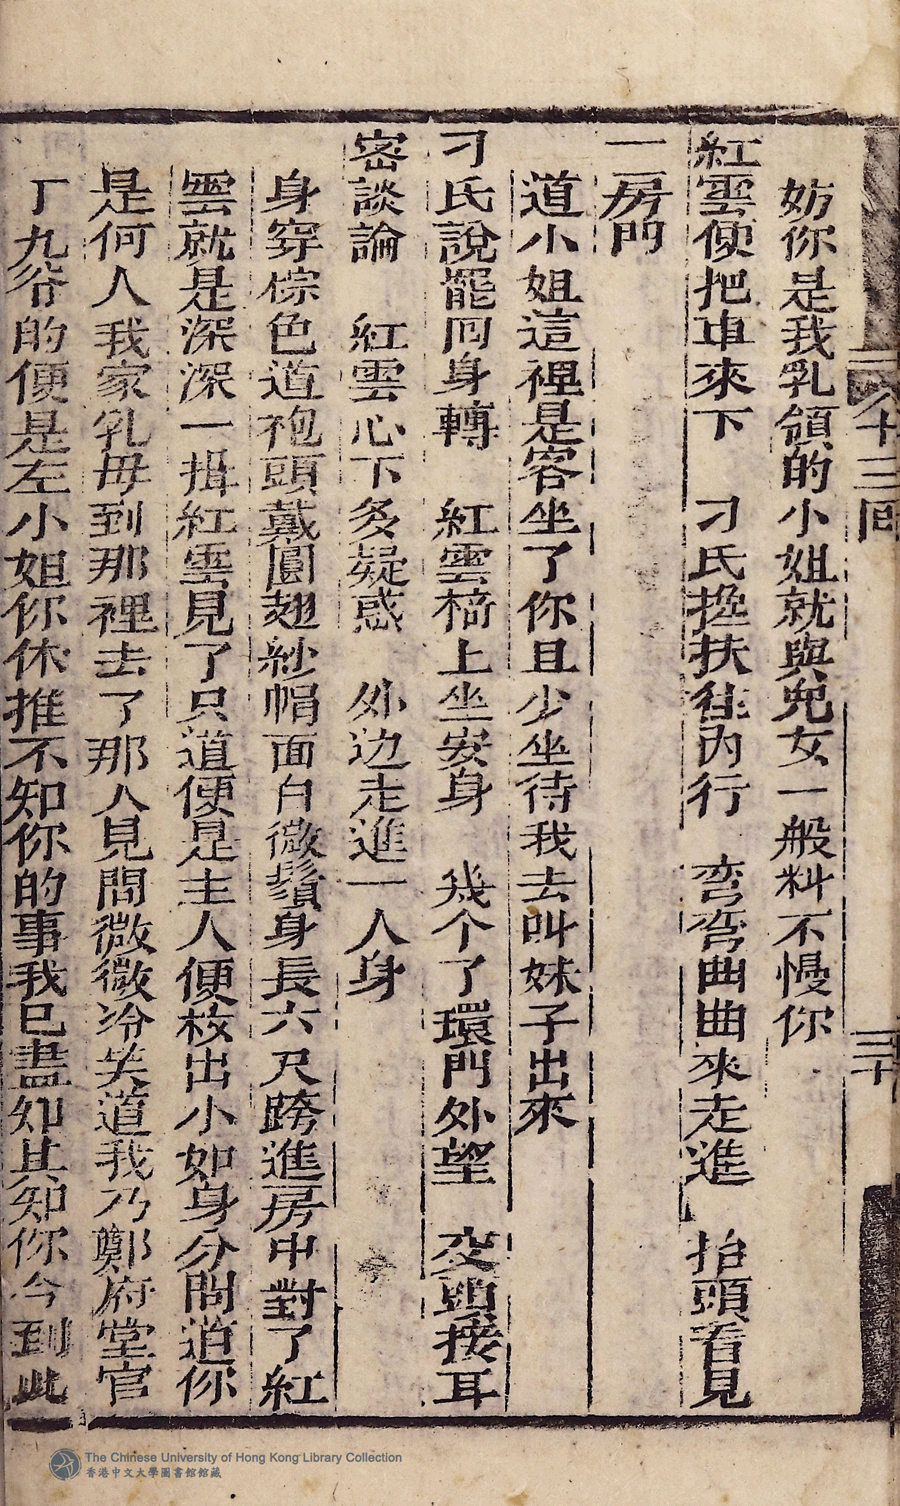 十三囬
三十
妨你是我乳領的小姐就與兒女一般料不慢你
紅雲便把車來下 刁氏挽扶徃內行 弯弯曲曲來走進 抬頭看見
一房門
道小姐這裡是客坐了你且少坐待我去叫妹子出來
刁氏說罷囘身轉 紅雲椅上坐安身 幾个了環門外望 交頭接耳
密談論 紅雲心下多疑惑 外边走進一人身
身穿棕色道袍頭戴圓翅紗帽面白微鬚身長六尺跨進房中對了紅
雲就是深深一揖紅雲見了只道便是主人便枚出小如身分問道你
是何人我家乳母到那裡去了那人見問微微冷笑道我乃鄭府堂官
丁九爷的便是左小姐你休推不知你的事我已盡知其知你今到此
The Chinese University of Hong Kong Library Collection
香港中文大學圖書館館藏